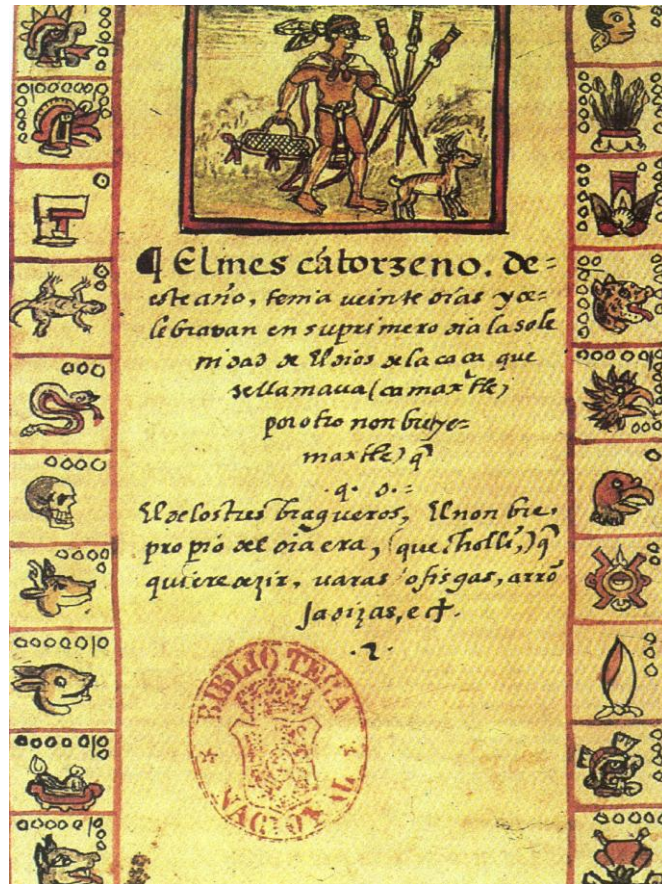 ¶ El mes catorzeno. de=
este año, tenia veinte dias y ce=
lebravan en su primero dia la sole
nidad de El dios de la caça que
se llamaua (camaxtle)
por otro nonbre ye=
maxtle) q̃
.q. d.=
El de los tres bragueros, El nonbre,
proprio del dia era, (que cholli,) q̃
quiere dezir, varas o fisgas, arro
jadizas, ect.
.2.
BIBLIOTECA